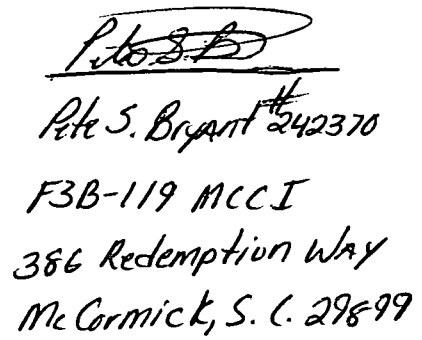 Pete S. B
Pete S. Bryant #242370
F3B-119 MCCI
386 Redemption WAY
McCormick, S.C. 29899